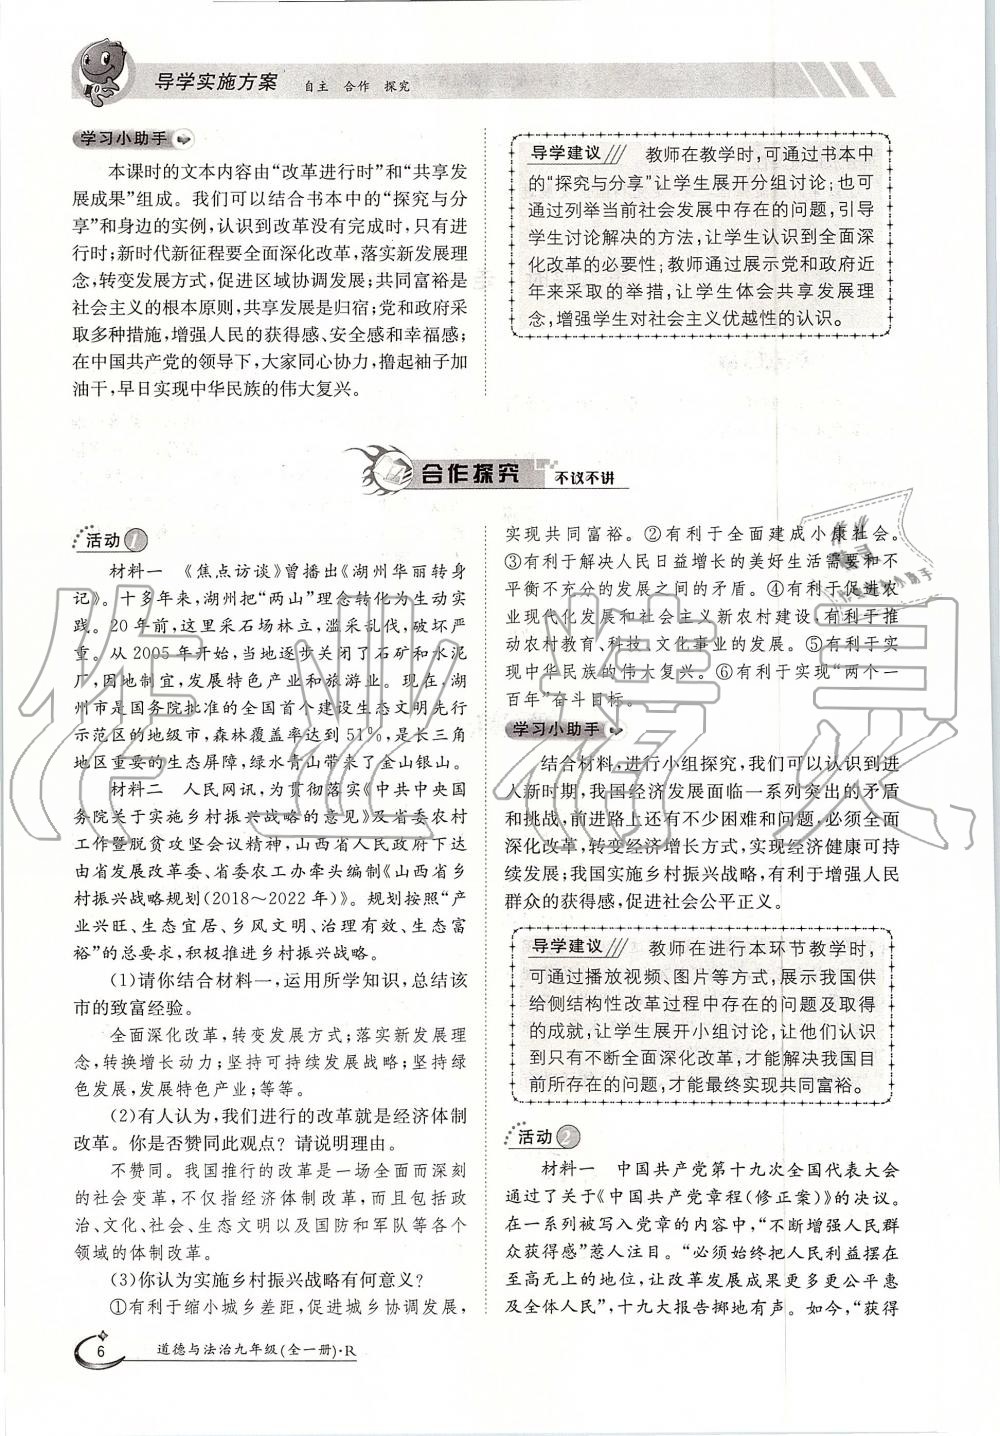 导学实施方案 自主 合作 探究
学习小助手
本课时的文本内容由“改革进行时”和“共享发
展成果”组成。我们可以结合书本中的“探究与分
享”和身边的实例,认识到改革没有完成时,只有进
行时;新时代新征程要全面深化改革,落实新发展理
念,转变发展方式,促进区域协调发展;共同富裕是
社会主义的根本原则,共享发展是归宿;党和政府采
取多种措施,增强人民的获得感、安全感和幸福感;
在中国共产党的领导下,大家同心协力,撸起袖子加
油干,早日实现中华民族的伟大复兴。
导学建议 教师在教学时,可通过书本中
的“探究与分享”让学生展开分组讨论;也可
通过列举当前社会发展中存在的问题,引导
学生讨论解决的方法,让学生认识到全面深
化改革的必要性;教师通过展示党和政府近
年来采取的举措,让学生体会共享发展理
念,增强学生对社会主义优越性的认识。
合作探究 不议不讲
活动1
材料一 《焦点访谈》曾播出《湖州华丽转身
记》。十多年来,湖州把“两山”理念转化为生动实
践。20年前,这里采石场林立,滥采乱伐,破坏严
重。从2005年开始,当地逐步关闭了石矿和水泥
厂,因地制宜,发展特色产业和旅游业。现在,湖
州市是国务院批准的全国首个建设生态文明先行
示范区的地级市,森林覆盖率达到51%,是长三角
地区重要的生态屏障,绿水青山带来了金山银山。
材料二 人民网讯,为贯彻落实《中共中央国
务院关于实施乡村振兴战略的意见》及省委农村
工作暨脱贫攻坚会议精神,山西省人民政府下达
由省发展改革委、省委农工办牵头编制《山西省乡
村振兴战略规划(2018～2022年)》。规划按照“产
业兴旺、生态宜居、乡风文明、治理有效、生态富
裕”的总要求,积极推进乡村振兴战略。
(1)请你结合材料一,运用所学知识,总结该
市的致富经验。
全面深化改革,转变发展方式;落实新发展理
念,转换增长动力;坚持可持续发展战略;坚持绿
色发展,发展特色产业;等等。
(2)有人认为,我们进行的改革就是经济体制
改革。你是否赞同此观点?请说明理由。
不赞同。我国推行的改革是一场全面而深刻
的社会变革,不仅指经济体制改革,而且包括政
治、文化、社会、生态文明以及国防和军队等各个
领域的体制改革。
(3)你认为实施乡村振兴战略有何意义?
①有利于缩小城乡差距,促进城乡协调发展,
实现共同富裕。②有利于全面建成小康社会。
③有利于解决人民日益增长的美好生活需要和不
平衡不充分的发展之间的矛盾。④有利于促进农
业现代化发展和社会主义新农村建设,有利于推
动农村教育、科技、文化事业的发展。⑤有利于实
现中华民族的伟大复兴。⑥有利于实现“两个一
百年”奋斗目标。
学习小助手
结合材料,进行小组探究,我们可以认识到进
入新时期,我国经济发展面临一系列突出的矛盾
和挑战,前进路上还有不少困难和问题,必须全面
深化改革,转变经济增长方式,实现经济健康可持
续发展;我国实施乡村振兴战略,有利于增强人民
群众的获得感,促进社会公平正义。
导学建议 教师在进行本环节教学时,
可通过播放视频、图片等方式,展示我国供
给侧结构性改革过程中存在的问题及取得
的成就,让学生展开小组讨论,让他们认识
到只有不断全面深化改革,才能解决我国目
前所存在的问题,才能最终实现共同富裕。
活动2
材料一 中国共产党第十九次全国代表大会
通过了关于《中国共产党章程(修正案)》的决议。
在一系列被写入党章的内容中,“不断增强人民群
众获得感”惹人注目。“必须始终把人民利益摆在
至高无上的地位,让改革发展成果更多更公平惠
及全体人民”,十九大报告掷地有声。如今,“获得
6 道德与法治九年级(全一册)·R
作业精灵